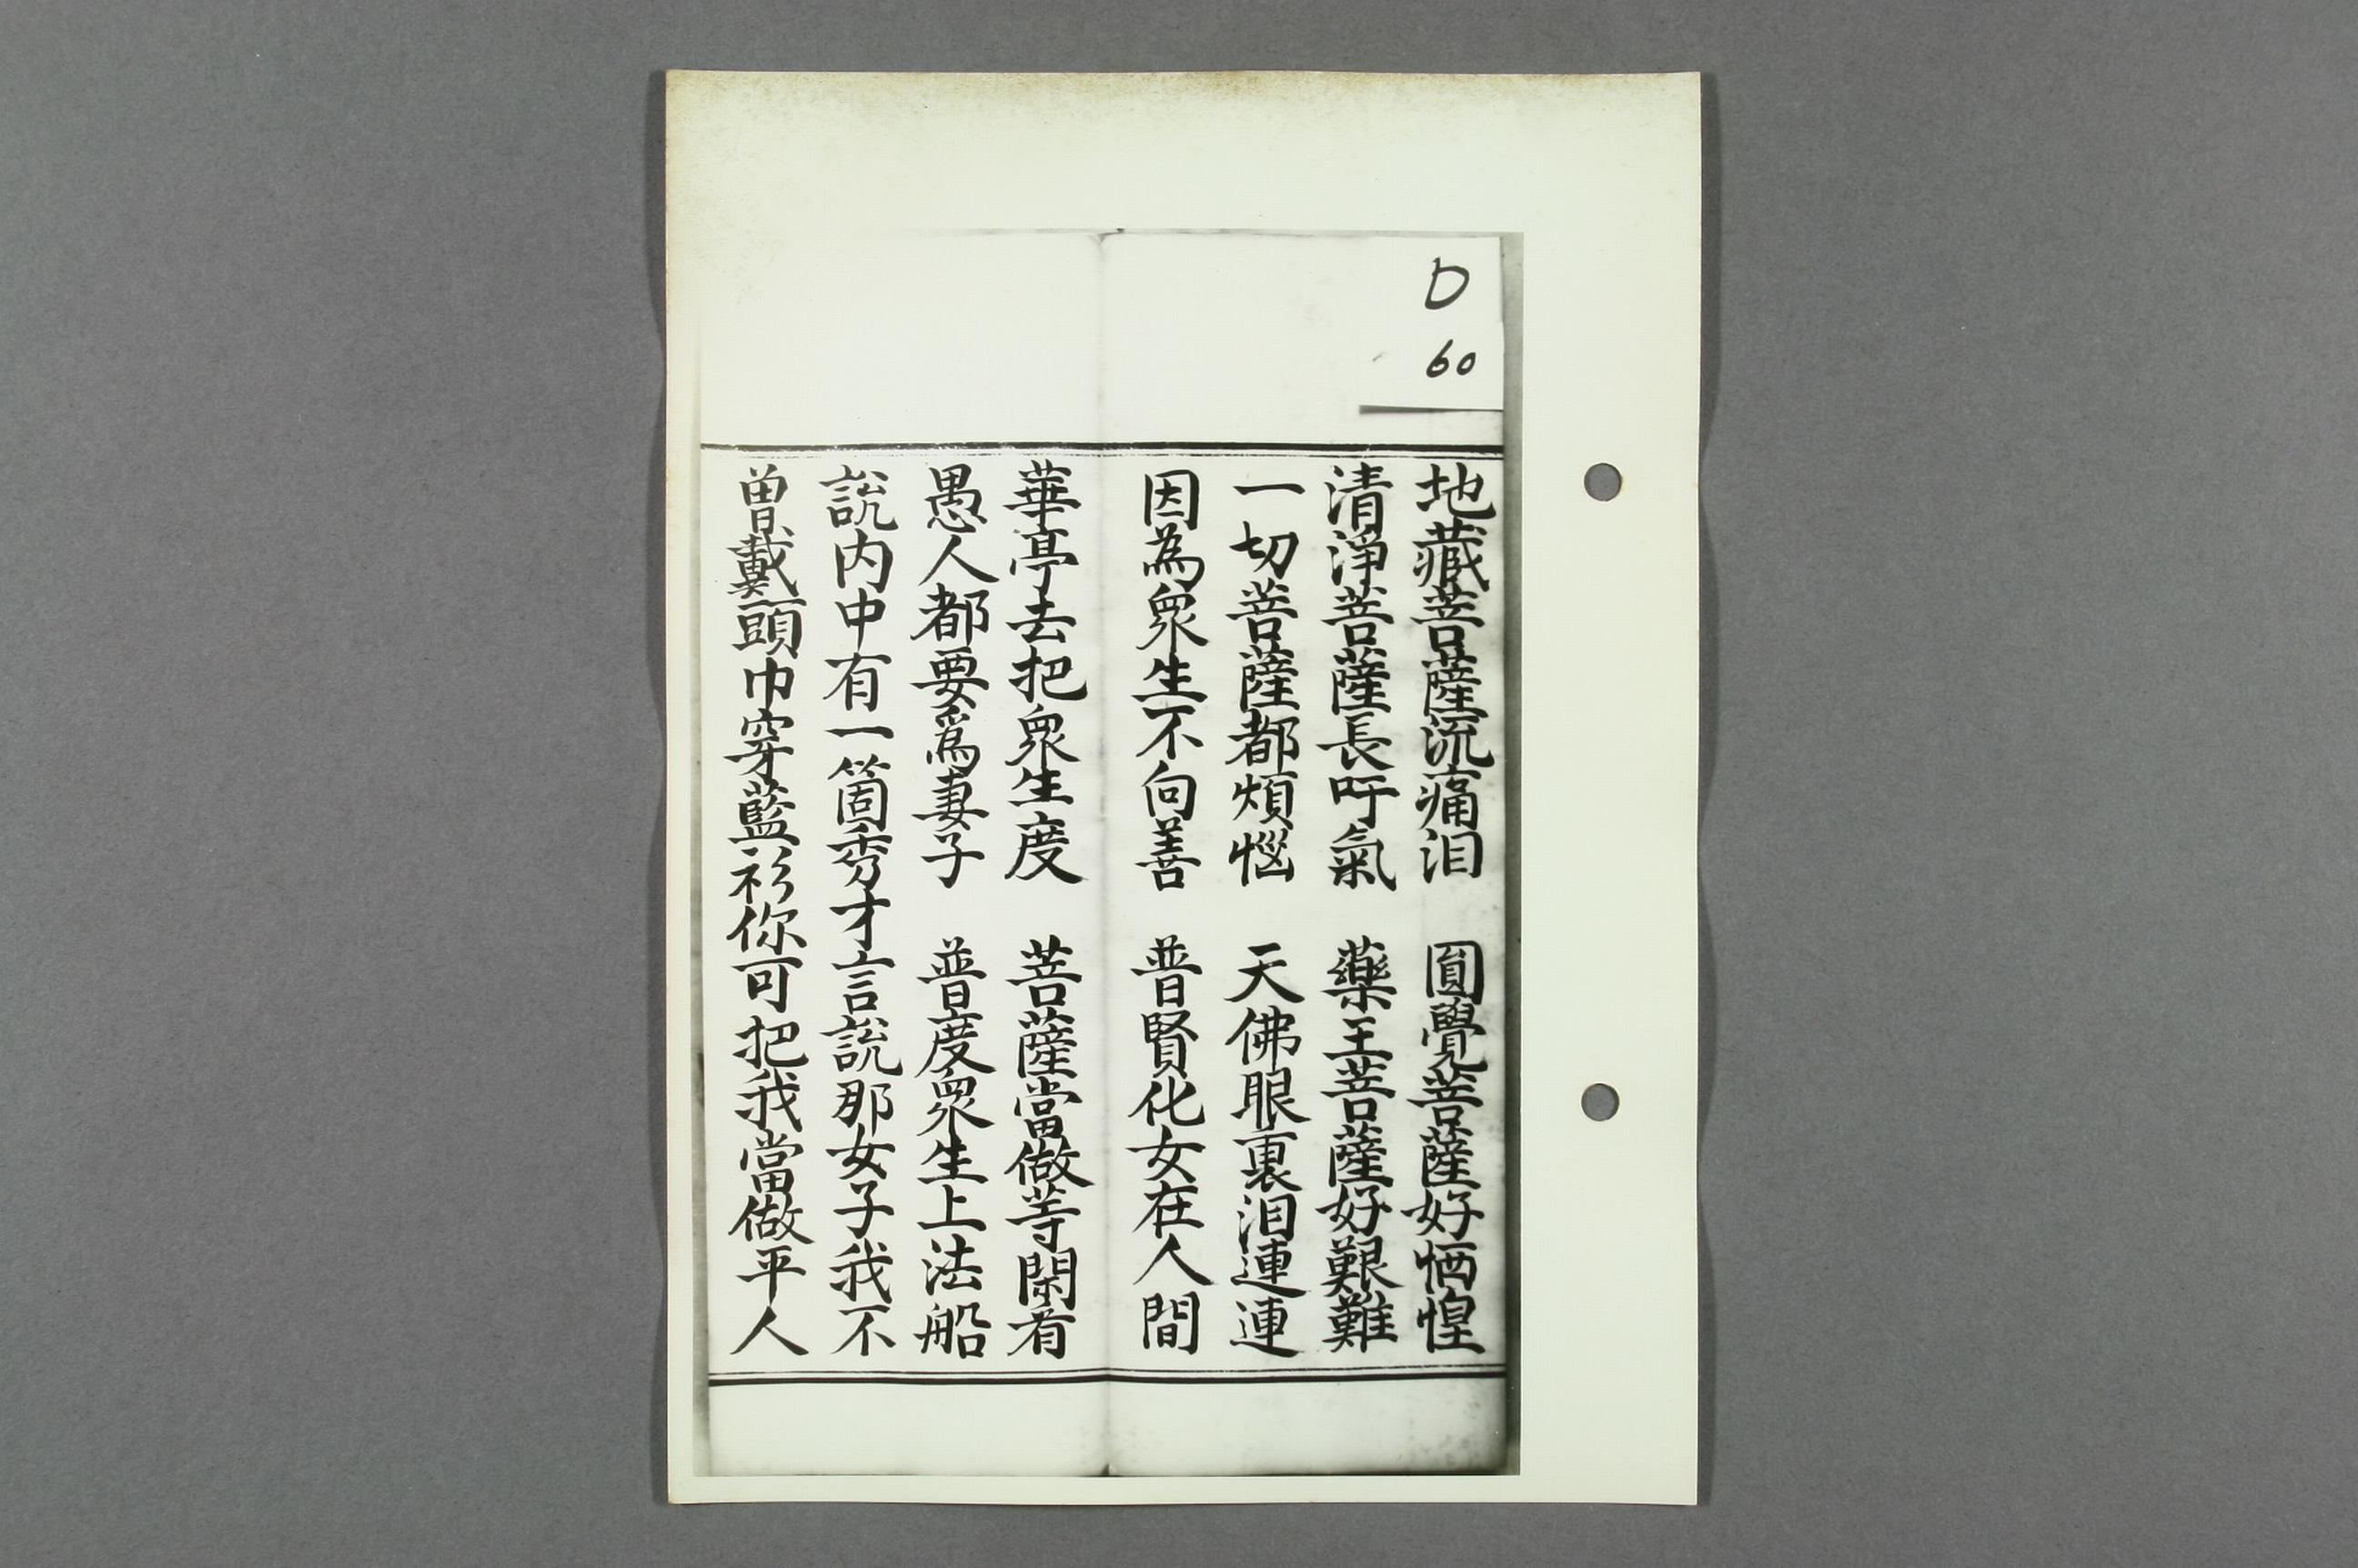 D
60
地藏菩薩流痛泪　圎覺菩薩好恓惶
清淨菩薩長吁氣　藥王菩薩好艱難
一切菩薩都煩惱　天佛眼裏泪連連
因為眾生不向善　普賢化女在人間
華亭去把眾生度　菩薩當做等閑看
愚人都要爲妻子　普度眾生上法船
說内中有一箇秀才言說那女子我不
曽戴頭巾穿藍衫你可把我當做平人